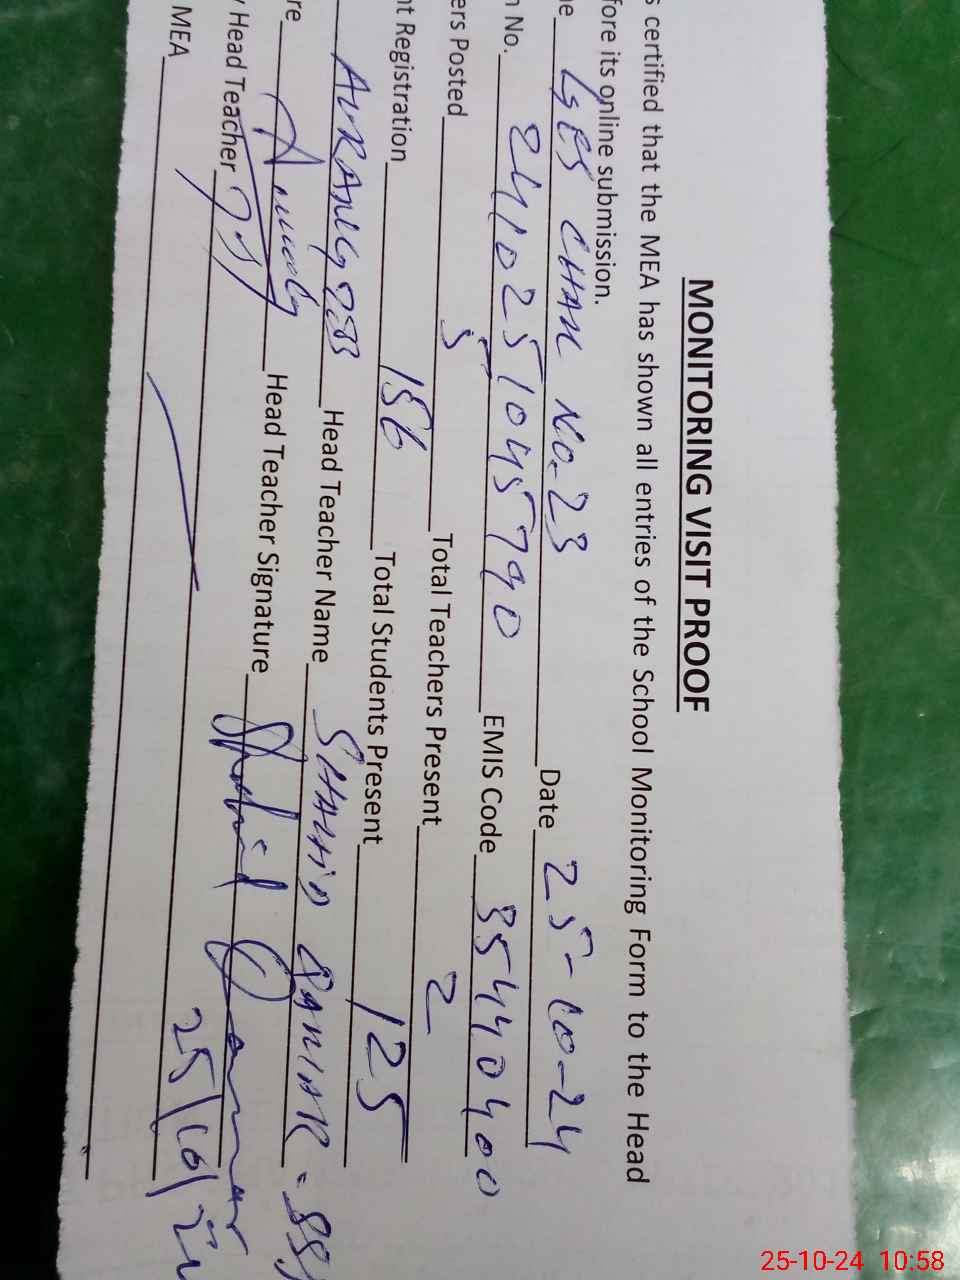 MONITORING VISIT PROOF
s certified that the MEA has shown all entries of the School Monitoring Form to the Head
fore its online submission.
me GES CHAK NO-23 Date 25-10-24
n No. 2410251045790 EMIS Code 35440400
ers Posted 5 Total Teachers Present 2
nt Registration 156 Total Students Present 125
Head Teacher Name SHAHID
re Head Teacher Signature
y Head Teacher 25/10/
MEA
25-10-24 10:58